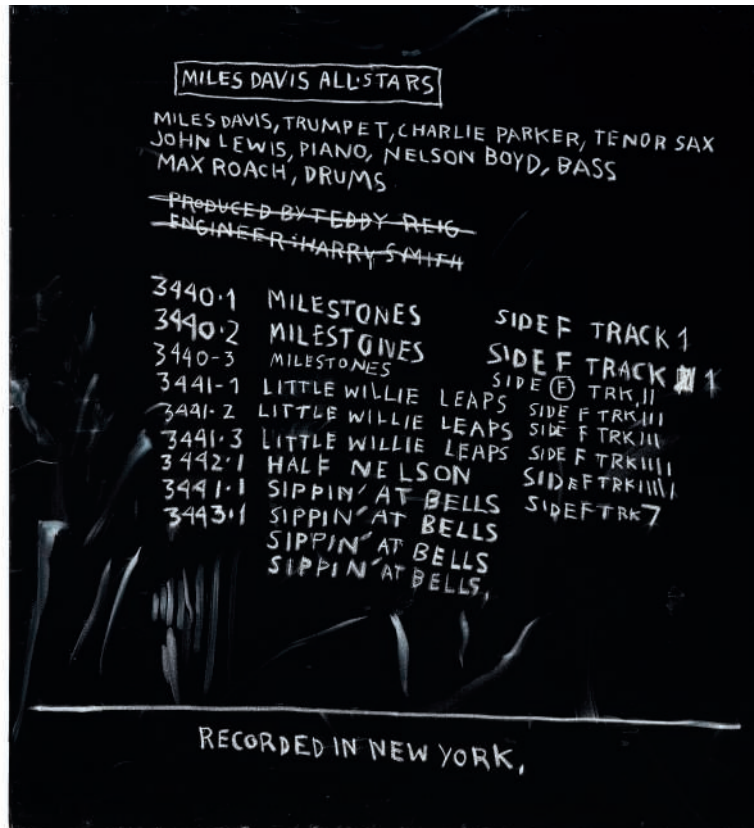 MILES DAVIS ALL·STARS
MILES DAVIS, TRUMPET, CHARLIE PARKER, TENOR SAX
JOHN LEWIS, PIANO, NELSON BOYD, BASS
MAX ROACH, DRUMS
PRODUCED BY TEDDY REIG
ENGINEER: HARRY SMITH
3440·1 MILESTONES SIDE F TRACK 1
3440·2 MILESTONES SIDE F TRACK 1
3440-3 MILESTONES SIDE F TRK.II
3441-1 LITTLE WILLIE LEAPS SIDE F TRK III
3441·2 LITTLE WILLIE LEAPS SIDE F TRK III
3441·3 LITTLE WILLIE LEAPS SIDE F TRK IIII
3442·1 HALF NELSON SIDE F TRK IIIII
3441·1 SIPPIN' AT BELLS SIDE F TRK 7
3443·1 SIPPIN' AT BELLS
SIPPIN' AT BELLS
SIPPIN' AT BELLS,
RECORDED IN NEW YORK,